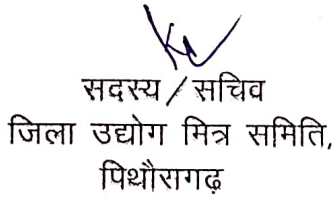 सदस्य / सचिव
जिला उद्योग मित्र समिति,
पिथौरागढ़